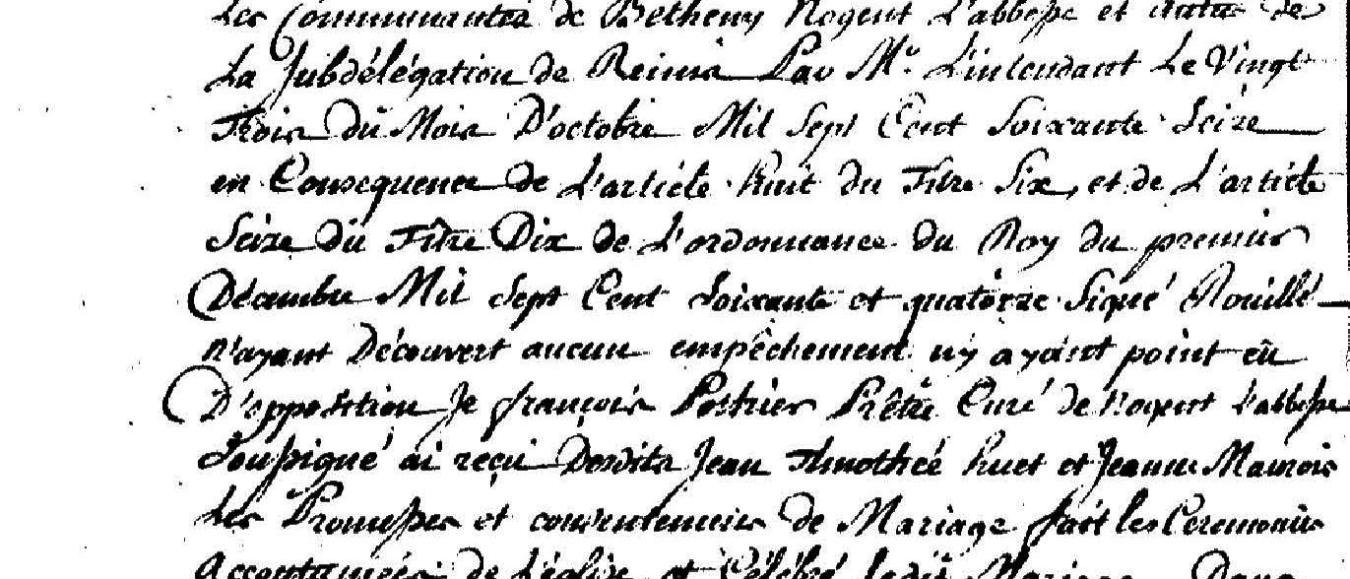 Les Communautés de Betheny Nogent L'abbesse et autres de
La Subdélégation de Reims Par Mr. L'intendant Le Vingt
Trois du Mois D'octobre Mil Sept Cent Soixante Seize
en Consequence de L'article huit du Titre Six, et de L'article
Seize du Titre Dix de L'ordonnance du Roy du premier
Décembre Mil Sept Cent Soixante et quatorze Signé Rouillé
n'ayant Découvert aucun empêchement ny ayant point eû
D'opposition Je françois Pothier Prêtre Curé de Nogent L'abbesse
Soussigné ai reçu Desdits Jean Thimothée huet et Jeanne Maurois
Les Promesses et consentements de Mariage fait les Ceremonies
Accoutumées de L'église et Célébré ledit Mariage Dans